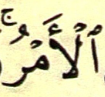 ٱلْأَمْرُ ۚ